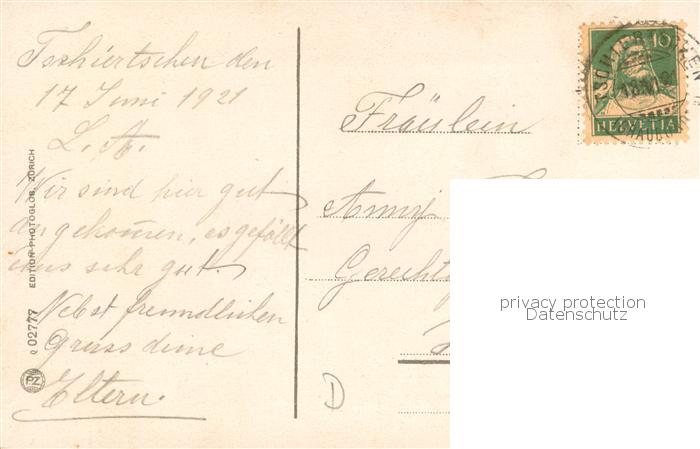 Tschiertschen den
17 Juni 1921
L. A.
Wir sind hier gut
angekom̄en, es gefällt
uns sehr gut.
Nebst freundlichen
Gruss deine
Eltern.
Q 02777 EDITION PHOTOGLOB, ZÜRICH
PZ
10
HELVETIA
Fräulein
Anny
D
privacy protection
Datenschutz